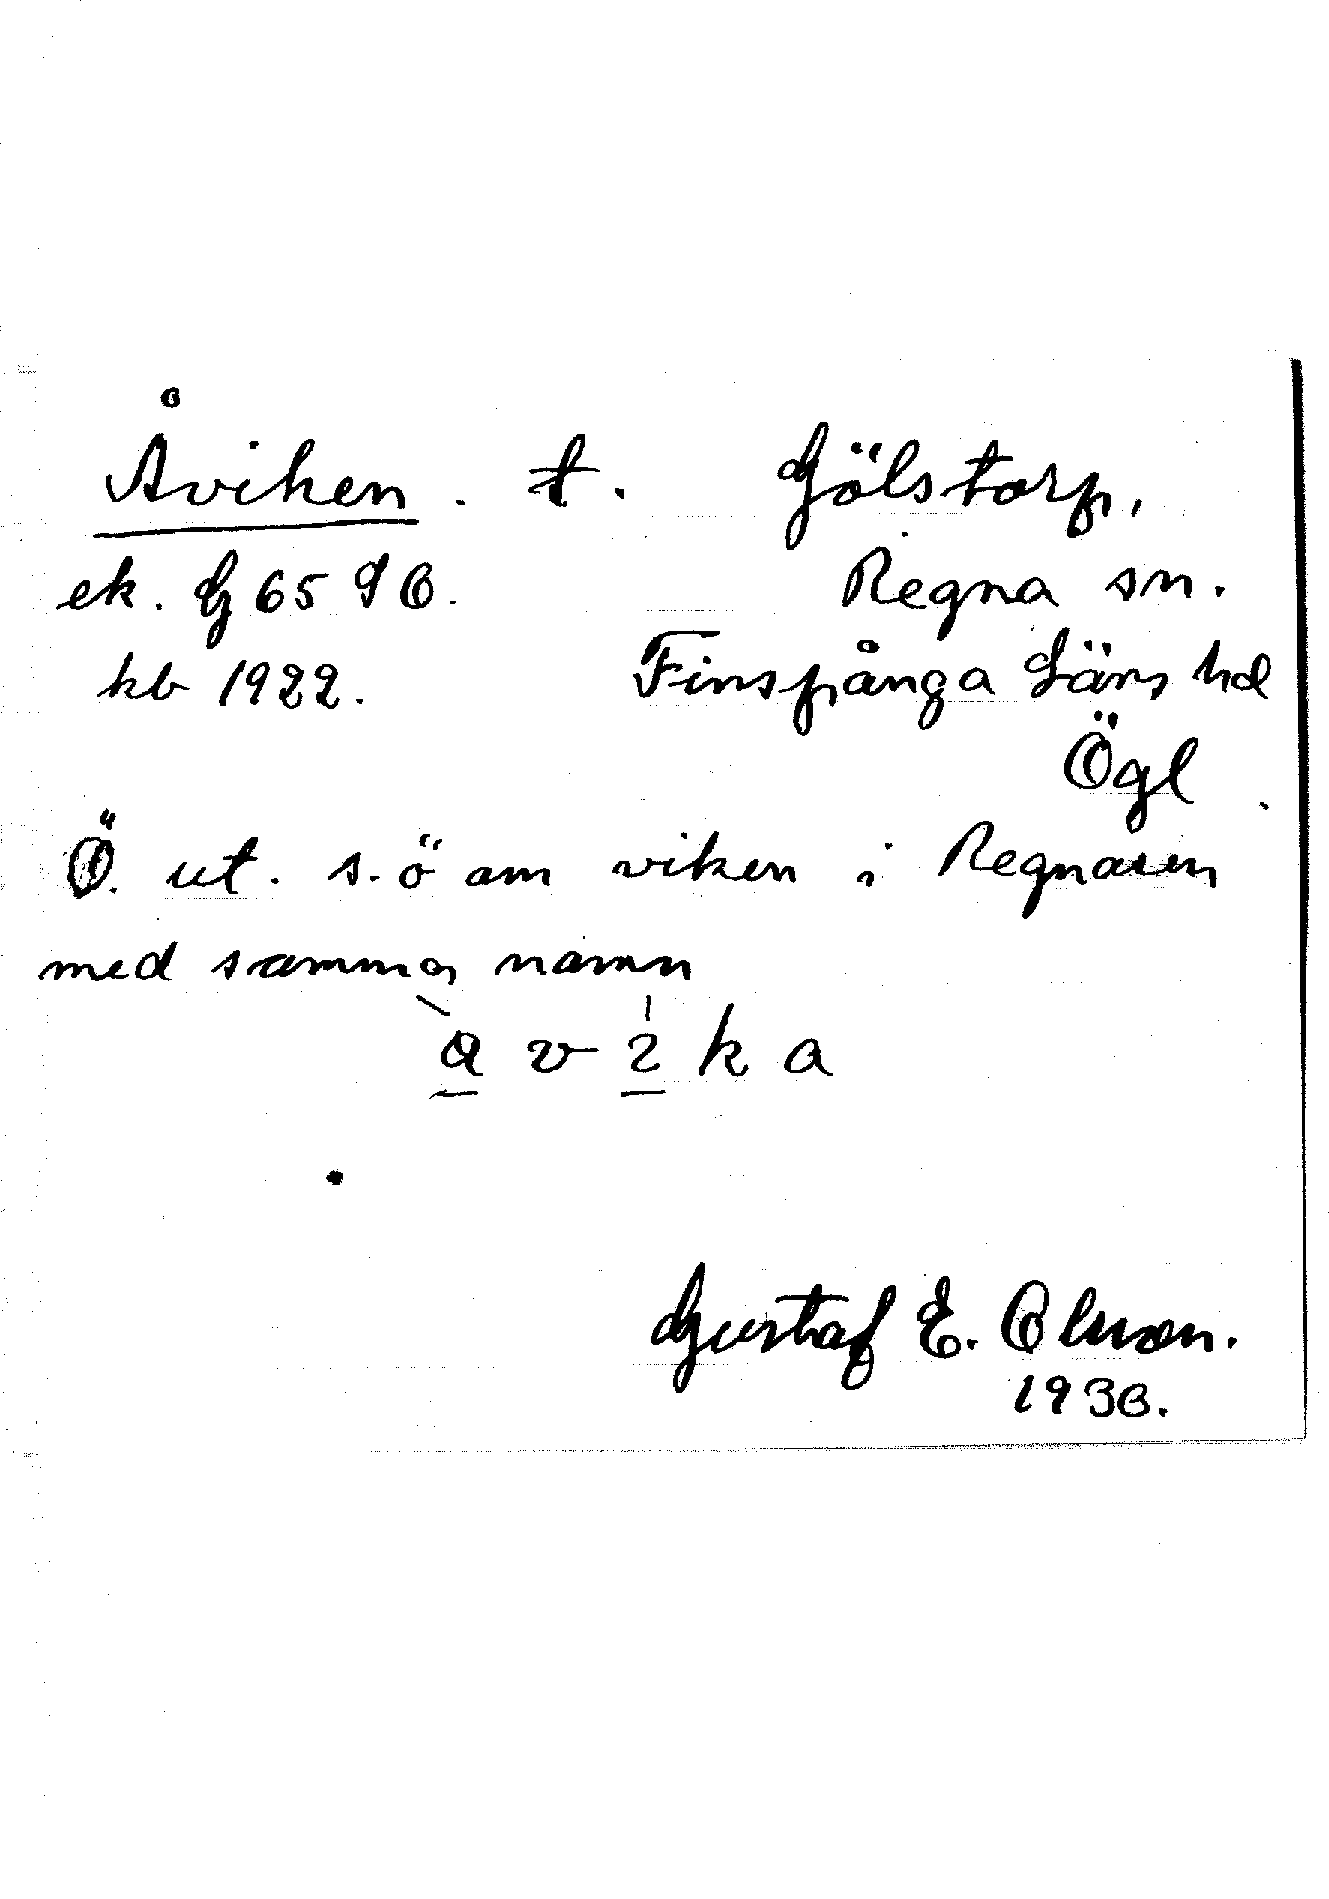 Åviken. t. Gölstorp,
ek. G 65 S O. Regna sn.
kb 1922. Finspånga Läns hd
Ögl.
Ö. ut. s. ö om viken i Regnaren
med samma namn
a v i k a
Gustaf E. Olsson.
1930.